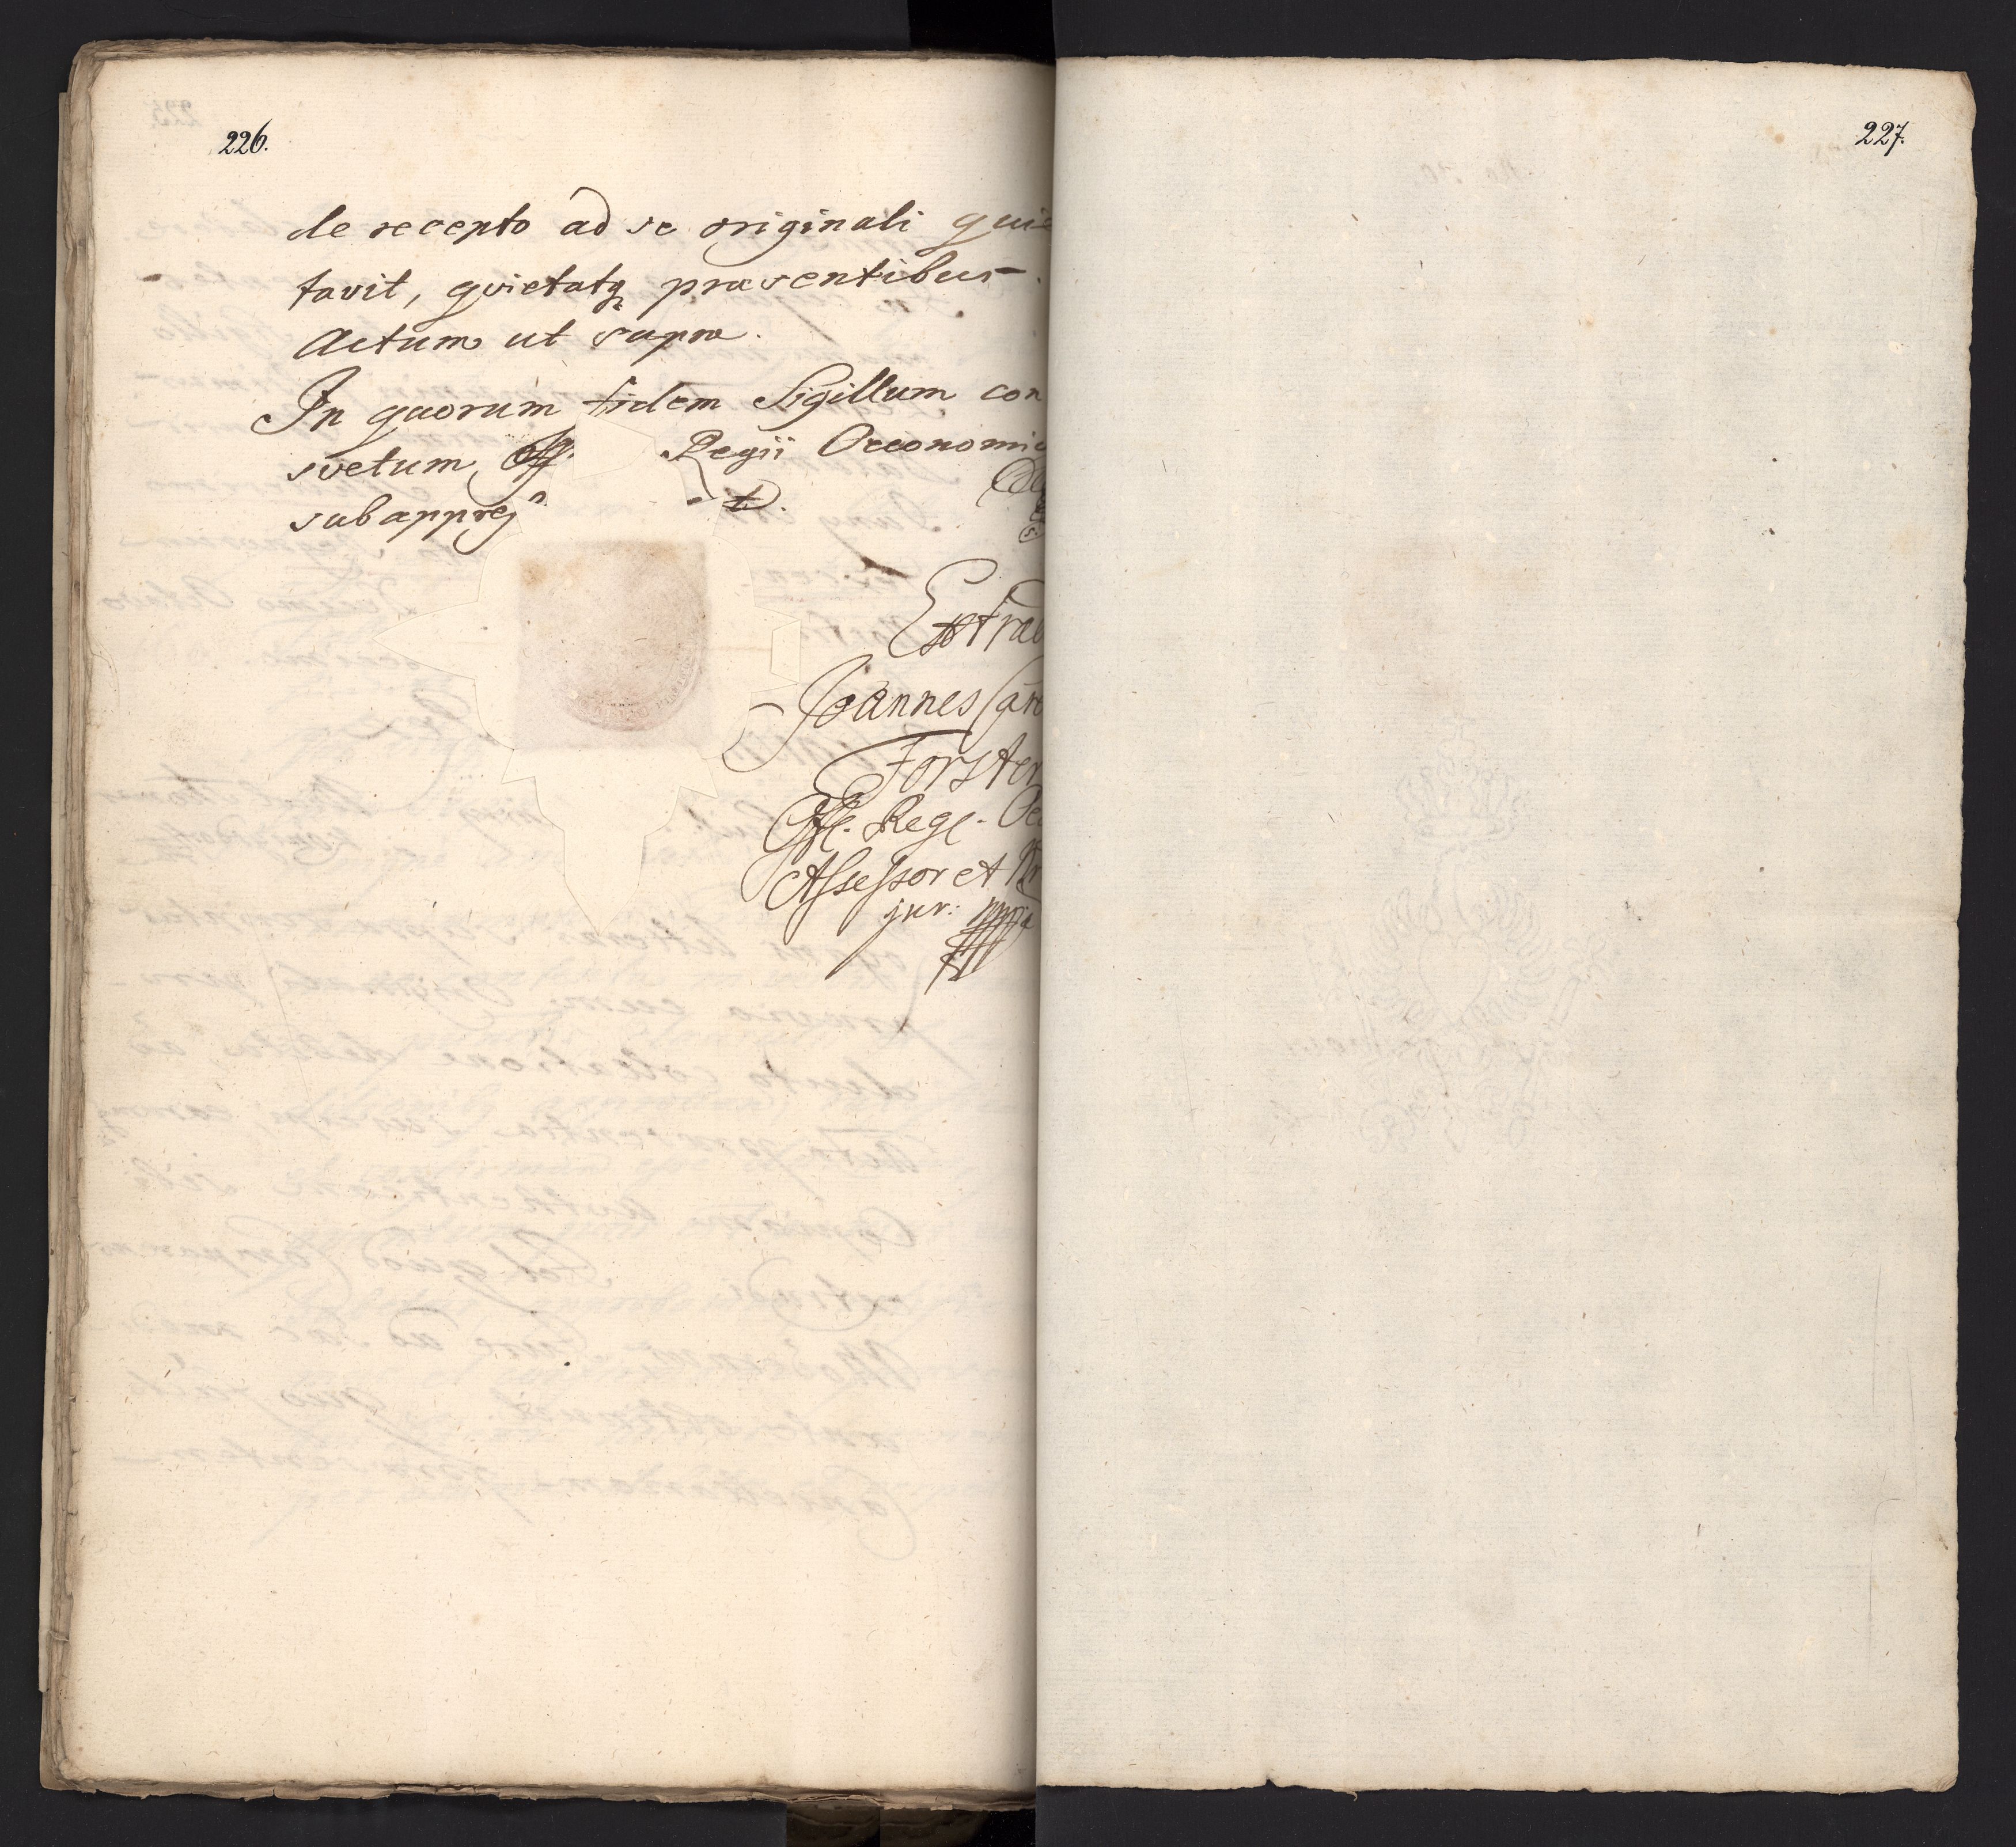 226.
de recepto ad se originali quie
tavit, qvietatq praesentibus.
Actum ut supra.
In quorum fidem Sigillum con
svetum Off. Regii Oeconomic
subappres
Extrad
Joannes Caro
Forster
Off. Reg. Oec
Assessor et
jur: mppia
227.